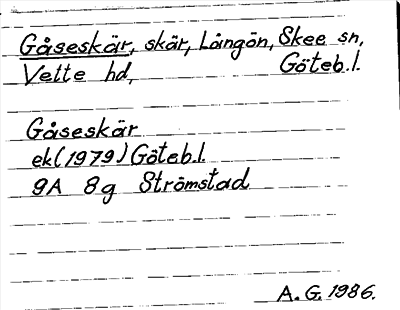 Gåseskär, skär, Långön, Skee sn,
Vette hd, Göteb.l.
Gåseskär
ek (1979) Göteb.l.
9A 8g Strömstad
A. G. 1986.